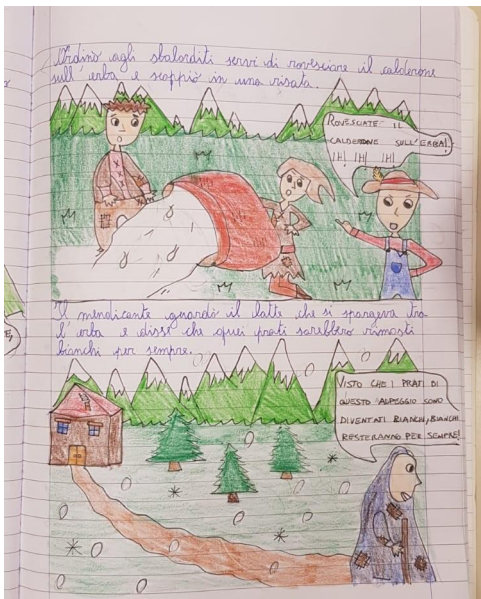 Ordinò agli sbalorditi servi di rovesciare il calderone
sull'erba e scoppiò in una risata.
ROVESCIATE IL
CALDERONE SULL'ERBA!
IH! IH! IH!
Il mendicante guardò il latte che si spargeva tra
l'erba e disse che quei prati sarebbero rimasti
bianchi per sempre.
VISTO CHE I PRATI DI
QUESTO ALPEGGIO SONO
DIVENTATI BIANCHI, BIANCHI
RESTERANNO PER SEMPRE!